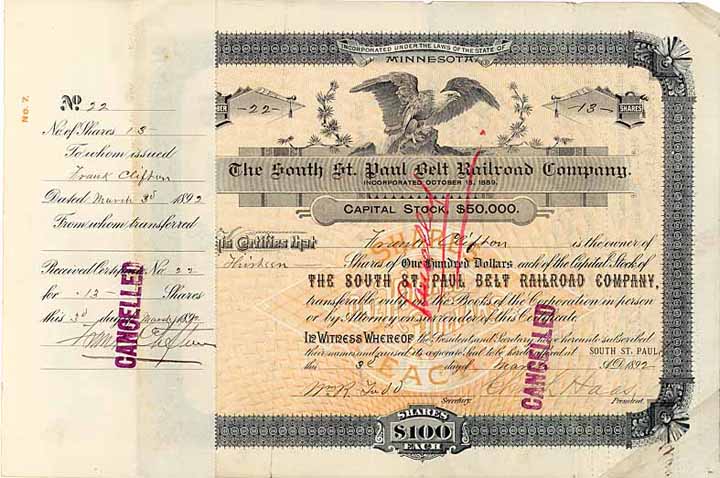 No. 7.
No 22
No. of Shares 13
To whom issued
Frank Clifton
Dated March 3d 1892
From whom transferred
Received Certificate No. 22
for 13 Shares
this 3d day March 1892
Frank Clifton
CANCELLED
INCORPORATED UNDER THE LAWS OF THE STATE OF
MINNESOTA
NUMBER
22
13
SHARES
The South St. Paul Belt Railroad Company.
INCORPORATED OCTOBER 15, 1889.
CAPITAL STOCK, $50,000.
This Certifies that Frank Clifton is the owner of
Thirteen Shares of One Hundred Dollars each of the Capital Stock of
THE SOUTH ST. PAUL BELT RAILROAD COMPANY,
transferable only on the Books of the Corporation in person
or by Attorney on surrender of this Certificate.
In Witness Whereof the President and Secretary have hereunto subscribed
their names and caused its corporate Seal to be hereto affixed at SOUTH ST. PAUL
this 3d day of March A.D. 1892
Wm R. Todd
Secretary.
President.
CANCELLED
SHARES
$100
EACH